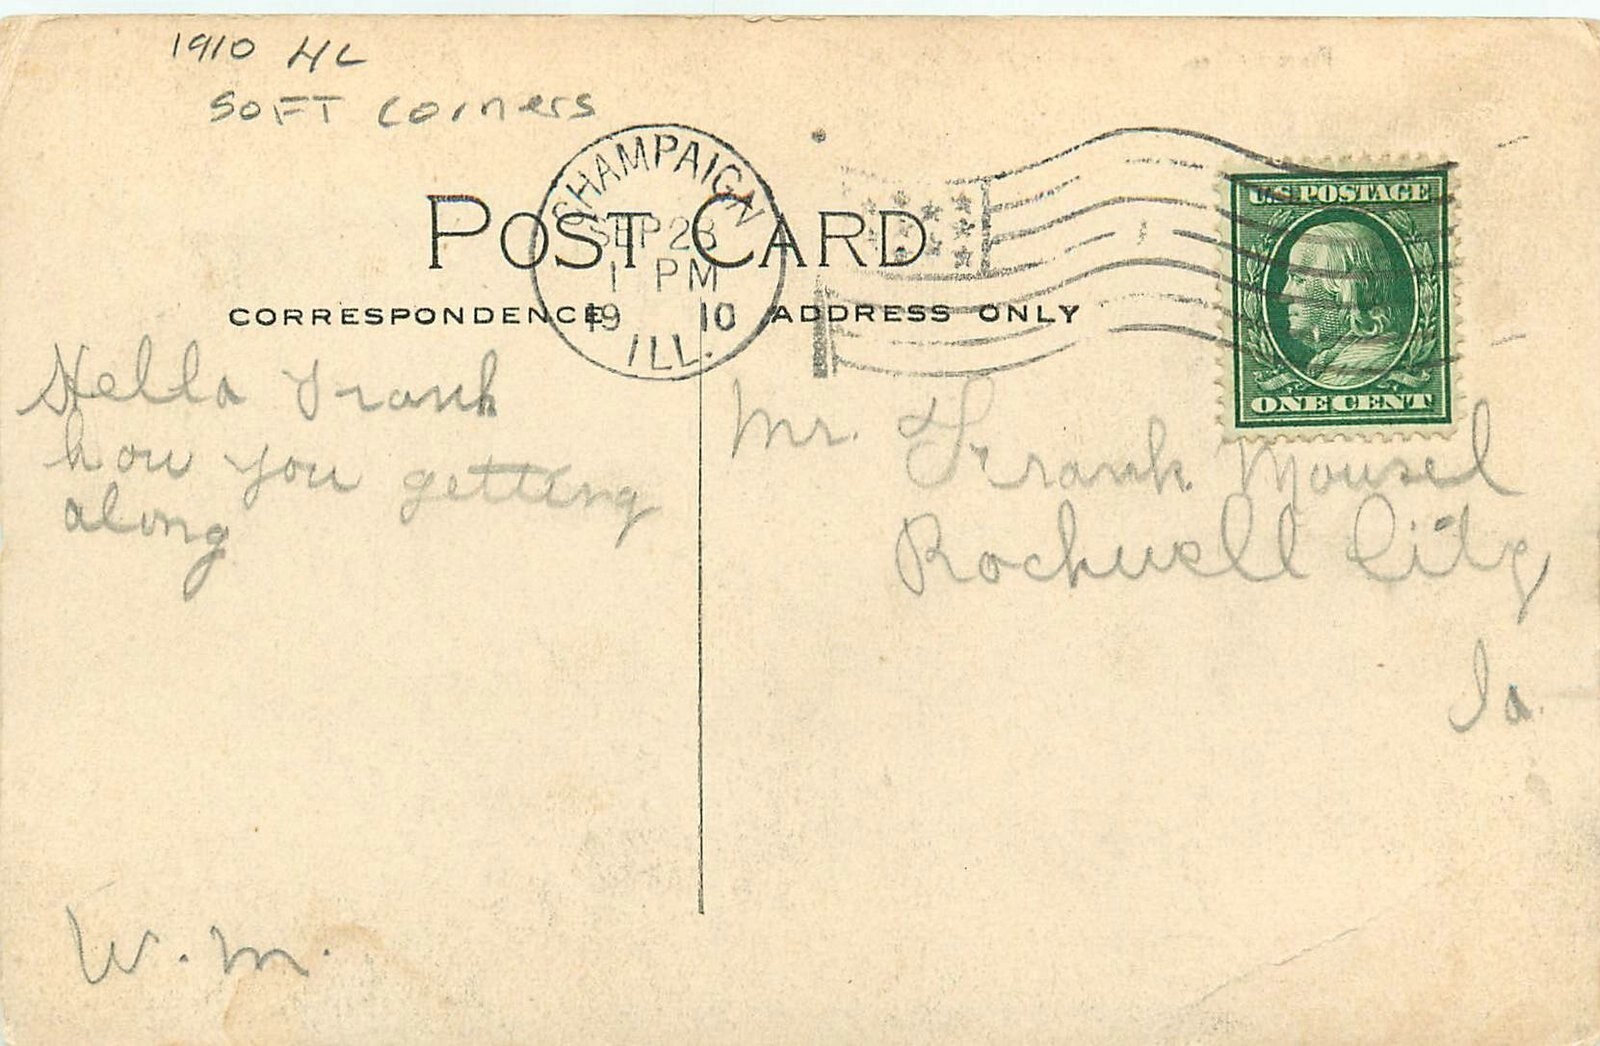 1910 HL
SOFT Corners
CHAMPAIGN
SEP 28
1 PM
1910
ILL.
POST CARD
CORRESPONDENCE
ADDRESS ONLY
U.S. POSTAGE
ONE CENT
Hello Frank
how you getting
along
W. M.
Mr. Frank Mousel
Rockwell City
Ia.